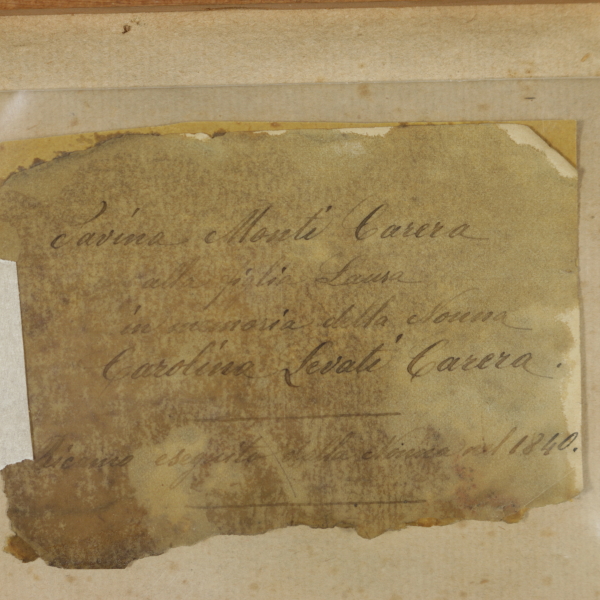 Savina Monti Carera
alla figlia Laura
in memoria della Nonna
Carolina Levati Carera.
Ricamo eseguito dalla Nonna nel 1840.